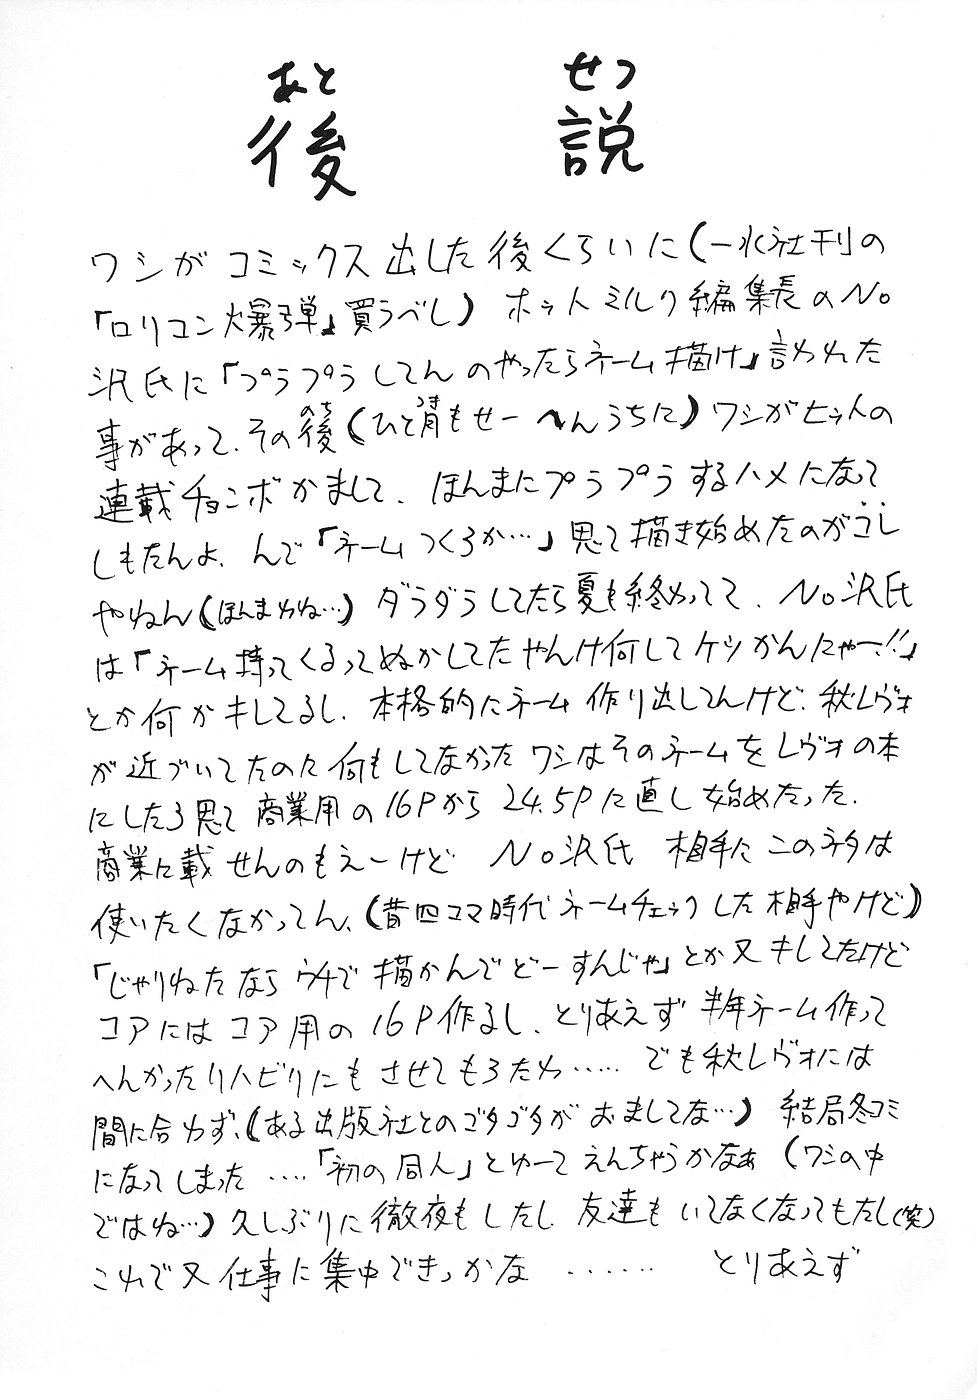 あと せつ
後 説
ワシがコミックス出した後くらいに(一水社刊の
「ロリコン爆弾」買うべし) ホットミルク編集長のNo
沢氏に「プラプラしてんのやったらネーム描け」言われた
事があって、その後(のち)(ひと月(つき)もせーへんうちに)ワシがヒットの
連載チョンボかまして、ほんまにプラプラするハメになって
しもたんよ、んで「ネームつくろか…」思て描き始めたのがコレ
やねん(ほんまかね…) ダラダラしてたら夏も終わってて、No沢氏
は「ネーム持ってくるってぬかしてたやんけ何してケツかんにゃー!!」
とか何かキしてるし、本格的にネーム作り出してんけど、秋レヴォ
が近づいてたのに何もしてなかったワシはそのネームをレヴォの本
にしたろ思て商業用の16Pから24.5Pに直し始めたった。
商業に載せんのもえーけど No沢氏 相手にこのネタは
使いたくなかってん、(昔四コマ時代ネームチェックした相手やけど)
「じゃりねたならウチで描かんでどーすんじゃ」とか又キしてたけど
コアにはコア用の16P作るし、とりあえず半年ネーム作って
へんかったリハビリにもさせてもろたわ‥‥‥ でも秋レヴォには
間に合わず、(ある出版社とのゴタゴタがおましてな…) 結局冬コミ
になってしまった ‥‥「初の同人」とゆーてえんちゃうかなぁ (ワシの中
ではね…) 久しぶりに徹夜もしたし、友達もいてなくなってもたし(笑)
これで又仕事に集中できっかな ‥‥‥‥ とりあえず